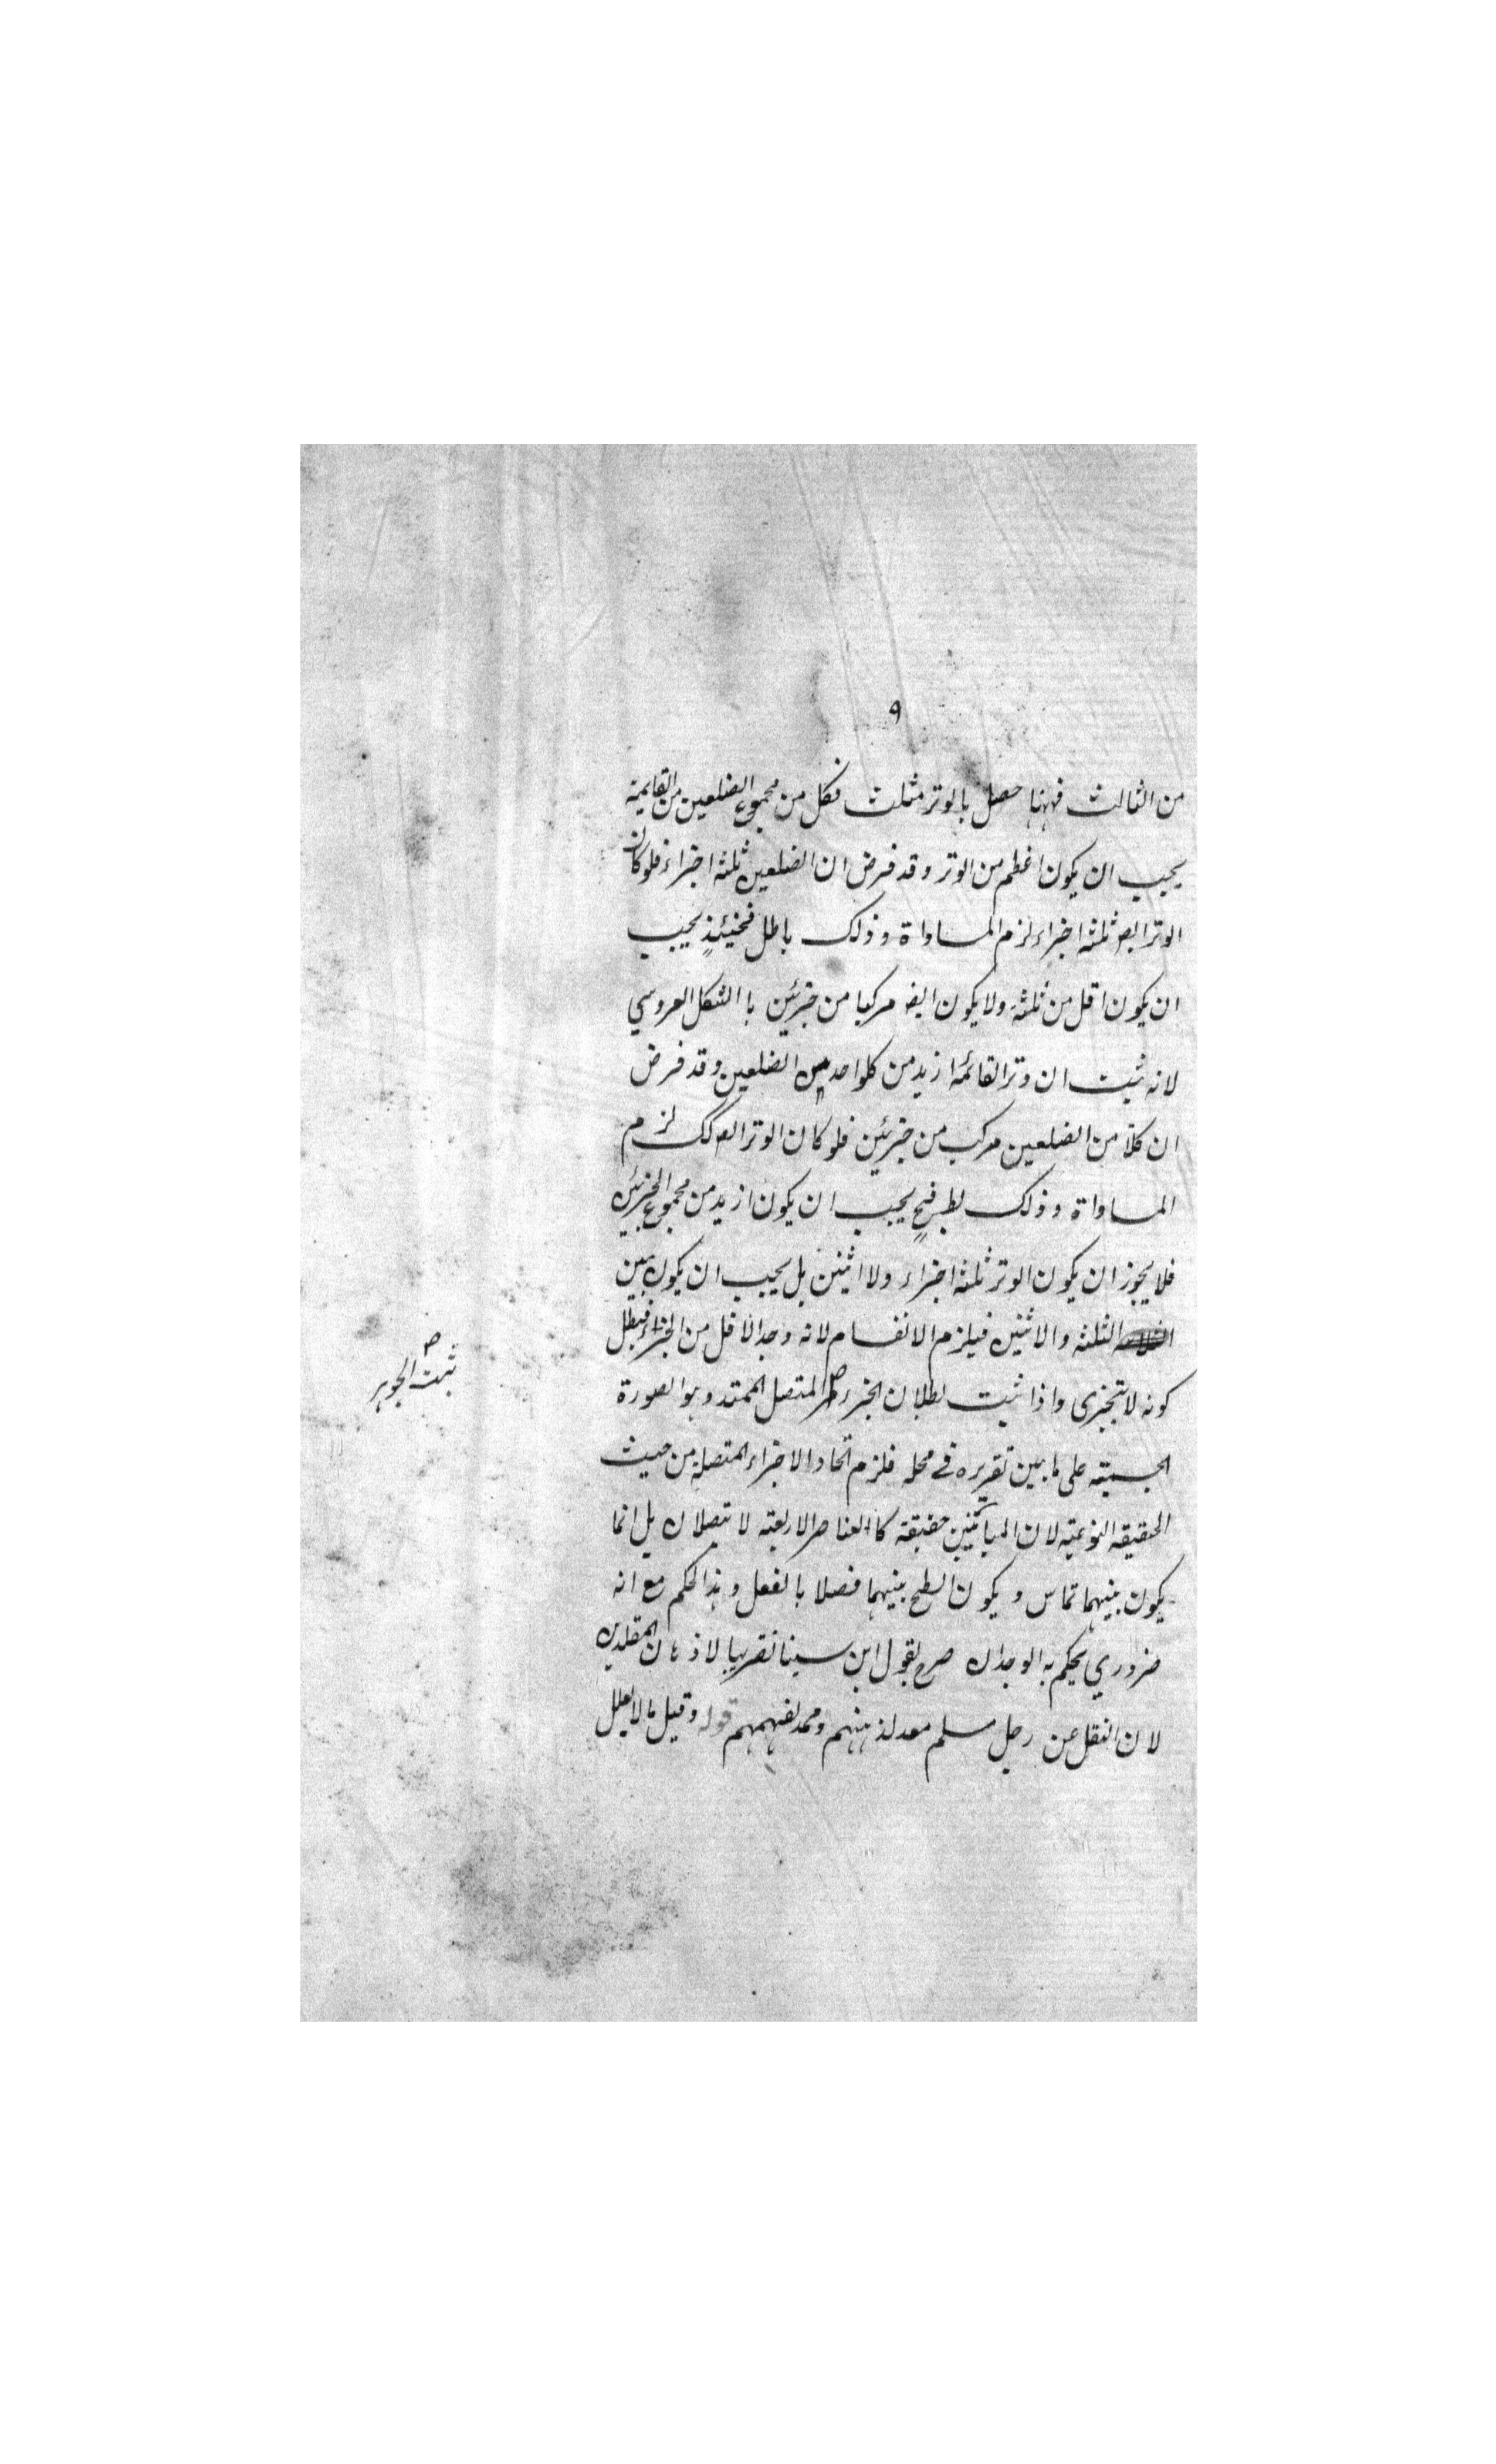 ٩
من الثالث فههنا حصل بالوتر مثلث فكل من مجموع الضلعين من القايمة
يجب ان يكون اعظم من الوتر وقد فرض ان الضلعين ثلثه اجزاء فلو كان
الوتر ايض ثلثه اجزاء لزم المساواة وذلك باطل فحينئذٍ يجب
ان يكون اقل من ثلثة ولا يكون ايض مركبا من جزئين با الشكل العروسي
لانه ثبت ان وتر القائمه ازيد من كلواحد من الضلعين وقد فرض
ان كلّا من الضلعين مركب من جزئين فلو كان الوتر ايض كك لزم
المساواة وذلك بط فح يجب ان يكون ازيد من مجموع الجزئين
فلا يجوز ان يكون الوتر ثلثه اجزاء ولا اثنين بل يجب ان يكون بين
الثلثه والاثنين فيلزم الانقسام لانه وجد الاقل من الجزء فبطل
كونه لا تجزى واذا ثبت بطلان الجزء المتصل الممتد وهو الصورة
ثبت الجوهر صح
الجسميته على ما بين تقريره في محله فلزم اتحاد الاجزاء المتصلة من حيث
الحقيقه النوعيته لان المباينين حقيقة كا العناصر الاربعته لا تتصلان بل انما
يكون بينهما تماس ويكون السطح بينهما فصلا بالفعل وهذا الحكم مع انه
ضروري يحكم به الوجدان صرح بقول ابن سينا تقريبا لاذهان المقلدين
لان النقل عن رجل مسلم معد لذهنهم وممد لفهمهم قوله وقيل ما لا يعلل